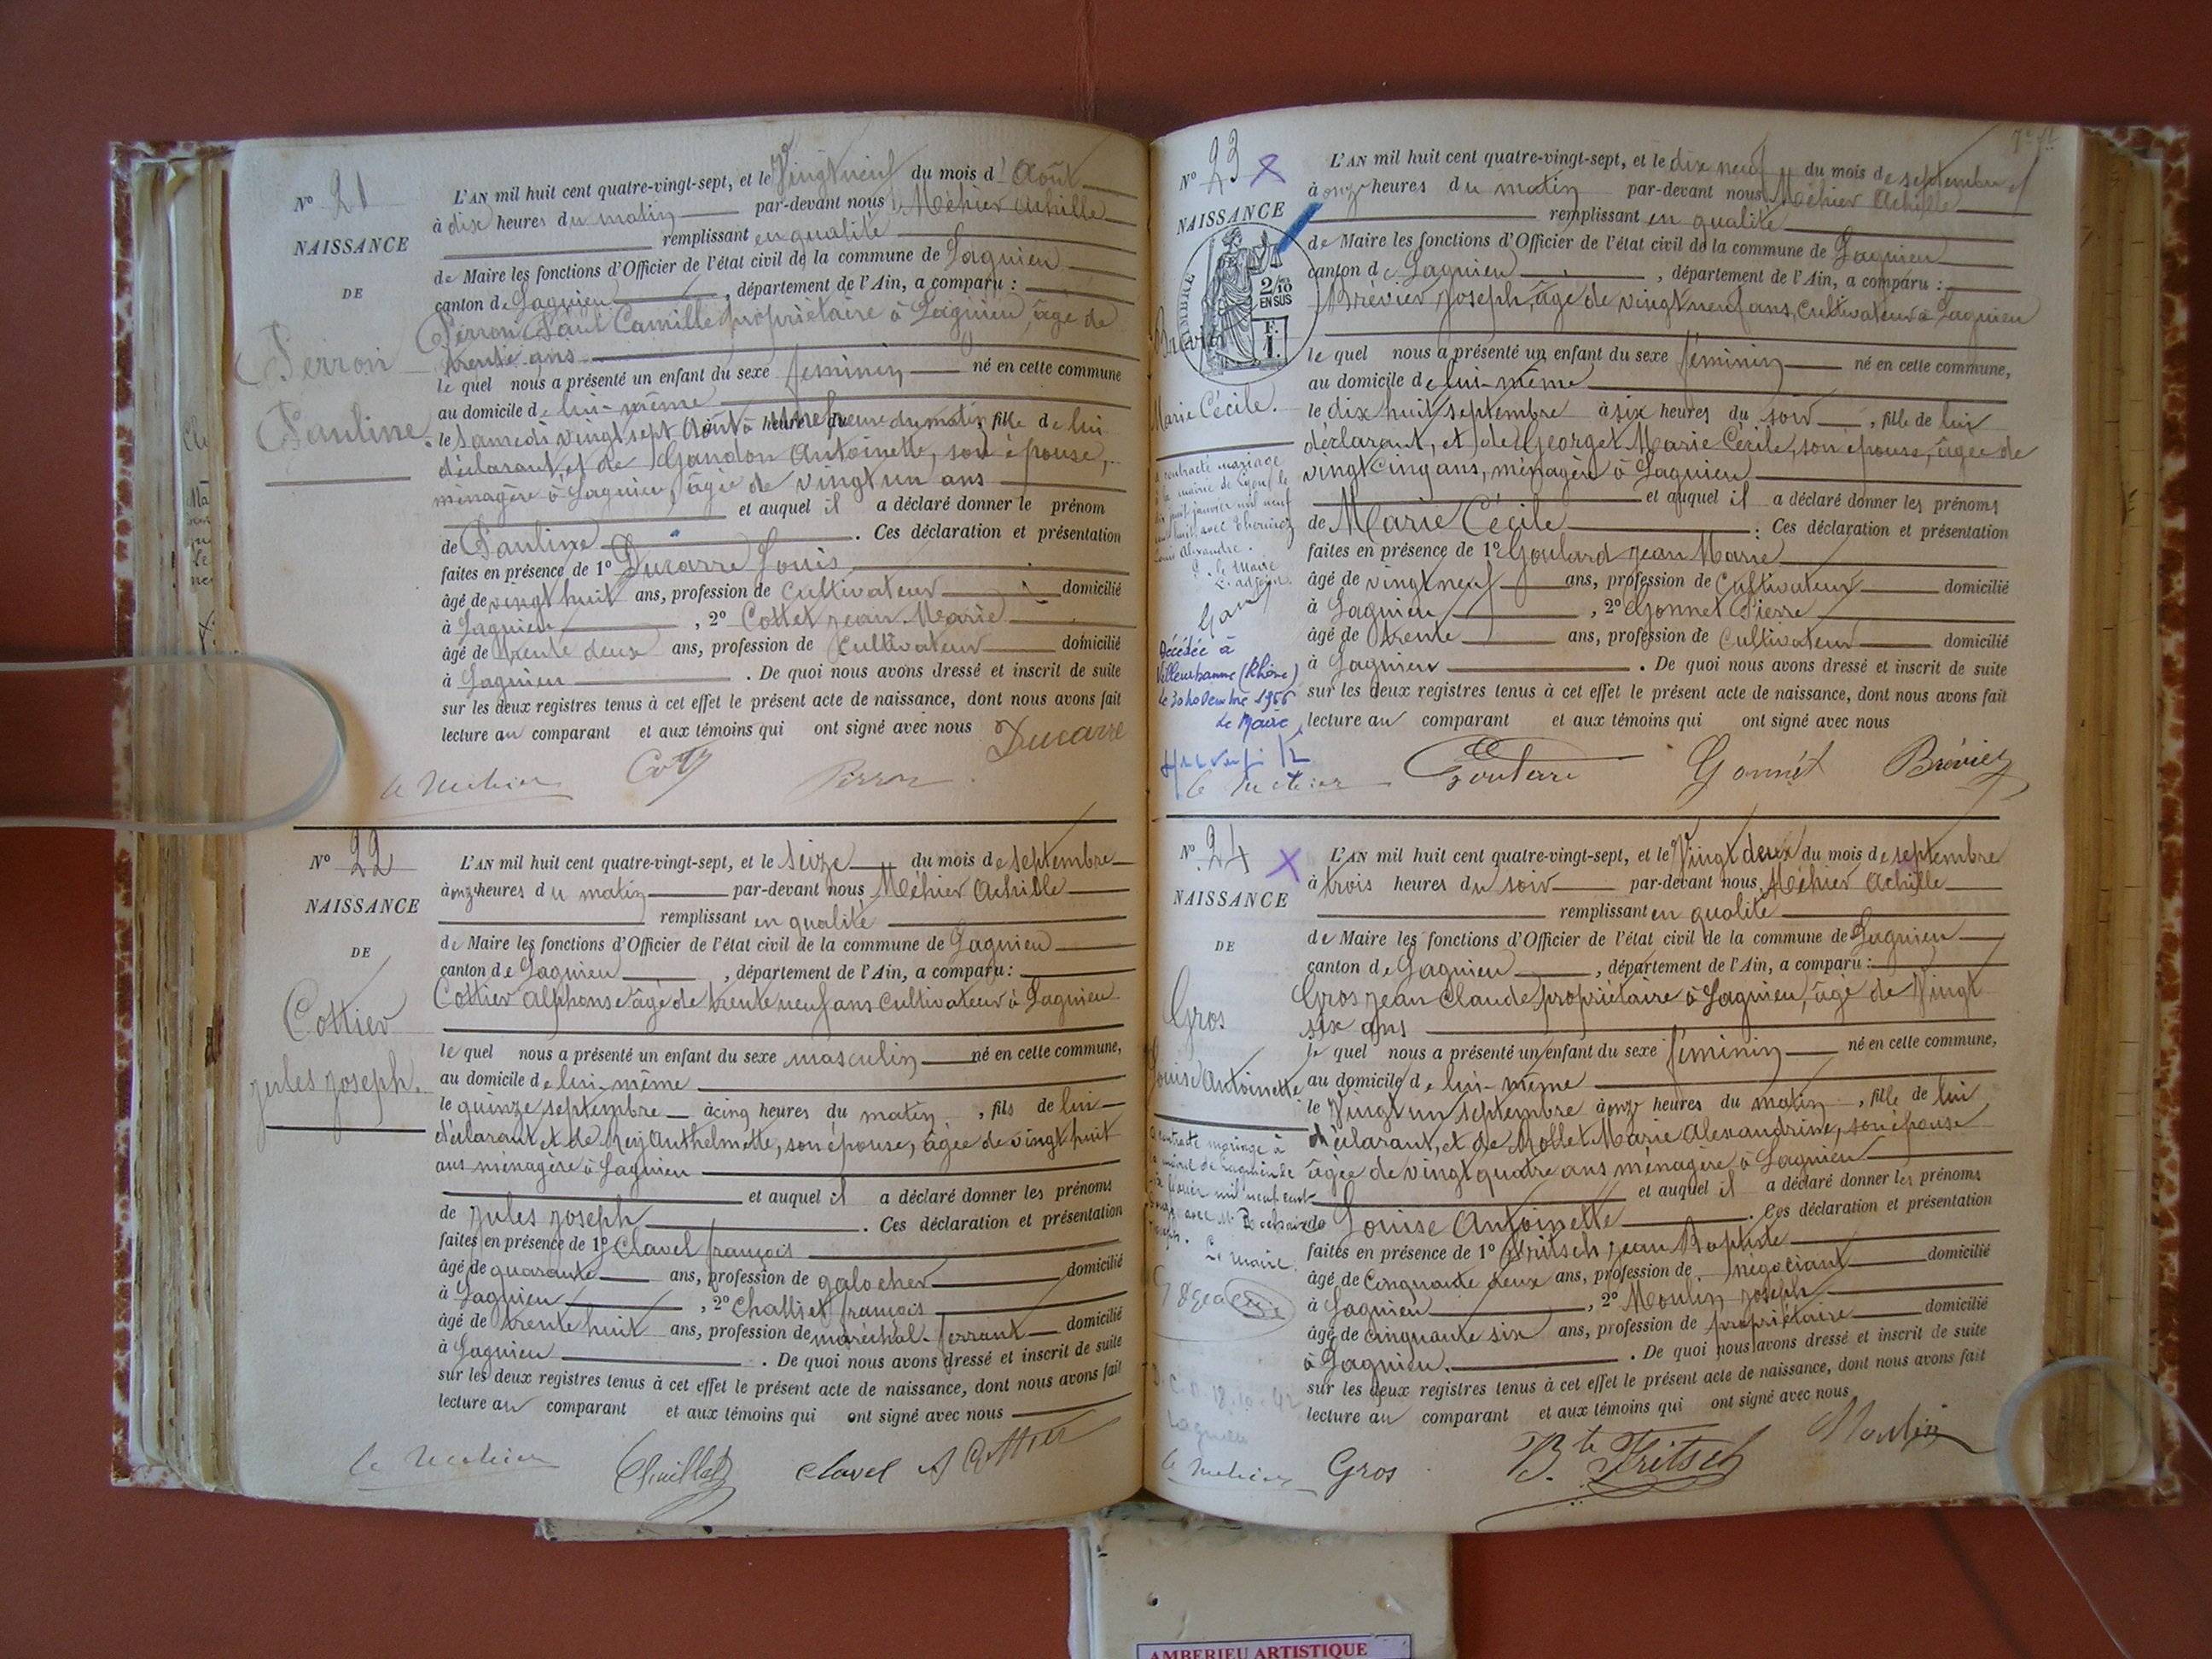 N° 21
NAISSANCE
DE
Perron
Pauline.
L'AN mil huit cent quatre-vingt-sept, et le Vingt neuf du mois d'Août
à dix heures du matin par-devant nous Méhier Achille
remplissant en qualité
de Maire les fonctions d'Officier de l'état civil de la commune de Lagnieu
canton de Lagnieu, département de l'Ain, a comparu :
Perron Paul Camille propriétaire à Lagnieu, âgé de
trente ans
le quel nous a présenté un enfant du sexe féminin né en cette commune
au domicile de lui-même
le Samedi vingt sept Août à heure du matin, fille de lui
déclarant, et de Gandon Antoinette, son épouse,
ménagère à Lagnieu, âgée de vingt un ans
et auquel il a déclaré donner le prénom
de Pauline. Ces déclaration et présentation
faites en présence de 1° Ducarre Louis
âgé de vingt huit ans, profession de Cultivateur domicilié
à Lagnieu, 2° Cottet Jean Marie
âgé de trente deux ans, profession de Cultivateur domicilié
à Lagnieu. De quoi nous avons dressé et inscrit de suite
sur les deux registres tenus à cet effet le présent acte de naissance, dont nous avons fait
lecture au comparant et aux témoins qui ont signé avec nous
Ducarre
Perron
N° 22
NAISSANCE
DE
Cottier
Jules Joseph.
L'AN mil huit cent quatre-vingt-sept, et le seize du mois de septembre
à onze heures du matin par-devant nous Méhier Achille
remplissant en qualité
de Maire les fonctions d'Officier de l'état civil de la commune de Lagnieu
canton de Lagnieu, département de l'Ain, a comparu :
Cottier Alphonse âgé de trente neuf ans Cultivateur à Lagnieu
le quel nous a présenté un enfant du sexe masculin né en cette commune,
au domicile de lui-même
le quinze septembre à cinq heures du matin, fils de lui
déclarant et de Rey Anthelmette, son épouse, âgée de vingt huit
ans ménagère à Lagnieu
et auquel il a déclaré donner les prénoms
de Jules Joseph. Ces déclaration et présentation
faites en présence de 1° Clavel françois
âgé de quarante ans, profession de galocher domicilié
à Lagnieu, 2° françois
âgé de trente huit ans, profession de maréchal-ferrant domicilié
à Lagnieu. De quoi nous avons dressé et inscrit de suite
sur les deux registres tenus à cet effet le présent acte de naissance, dont nous avons fait
lecture au comparant et aux témoins qui ont signé avec nous
clavel A Cottier
N° 23
NAISSANCE
TIMBRE
2/10 EN SUS
F. 1.
Marie Cécile.
contracté mariage
Décédée à
Villeurbanne (Rhône)
le 30 Novembre 1966
Le Maire
L'AN mil huit cent quatre-vingt-sept, et le dix neuf du mois de septembre
à onze heures du matin par-devant nous Méhier Achille
remplissant en qualité
de Maire les fonctions d'Officier de l'état civil de la commune de Lagnieu
canton de Lagnieu, département de l'Ain, a comparu :
Brévier Joseph, âgé de vingt neuf ans, Cultivateur à Lagnieu
le quel nous a présenté un enfant du sexe féminin né en cette commune,
au domicile de lui-même
le dix huit septembre à six heures du soir, fille de lui
déclarant, et de Georget Marie Cécile, son épouse, âgée de
vingt cinq ans, ménagère à Lagnieu
et auquel il a déclaré donner les prénoms
de Marie Cécile. Ces déclaration et présentation
faites en présence de 1° Goulard Jean Marie
âgé de vingt neuf ans, profession de Cultivateur domicilié
à Lagnieu, 2° Gonnet Pierre
âgé de trente ans, profession de Cultivateur domicilié
à Lagnieu. De quoi nous avons dressé et inscrit de suite
sur les deux registres tenus à cet effet le présent acte de naissance, dont nous avons fait
lecture au comparant et aux témoins qui ont signé avec nous
Gonnet Brévier
N° 24
NAISSANCE
DE
Gros
Louise Antoinette
contracté mariage à
Le maire
L'AN mil huit cent quatre-vingt-sept, et le Vingt deux du mois de septembre
à trois heures du soir par-devant nous, Méhier Achille
remplissant en qualité
de Maire les fonctions d'Officier de l'état civil de la commune de Lagnieu
canton de Lagnieu, département de l'Ain, a comparu :
Gros Jean Claude, propriétaire à Lagnieu, âgé de Vingt
six ans
le quel nous a présenté un enfant du sexe féminin né en cette commune,
au domicile de lui-même
le Vingt un septembre à onze heures du matin, fille de lui
déclarant, et de Mollet Marie Alexandrine, son épouse
âgée de vingt quatre ans ménagère à Lagnieu
et auquel il a déclaré donner les prénoms
de Louise Antoinette. Ces déclaration et présentation
faites en présence de 1° Fritsch Jean Baptiste
âgé de Cinquante deux ans, profession de négociant domicilié
à Lagnieu, 2° Moulin Joseph
âgé de cinquante six ans, profession de propriétaire domicilié
à Lagnieu. De quoi nous avons dressé et inscrit de suite
sur les deux registres tenus à cet effet le présent acte de naissance, dont nous avons fait
lecture au comparant et aux témoins qui ont signé avec nous
Gros Bte Fritsch Moulin
AMBERIEU ARTISTIQUE